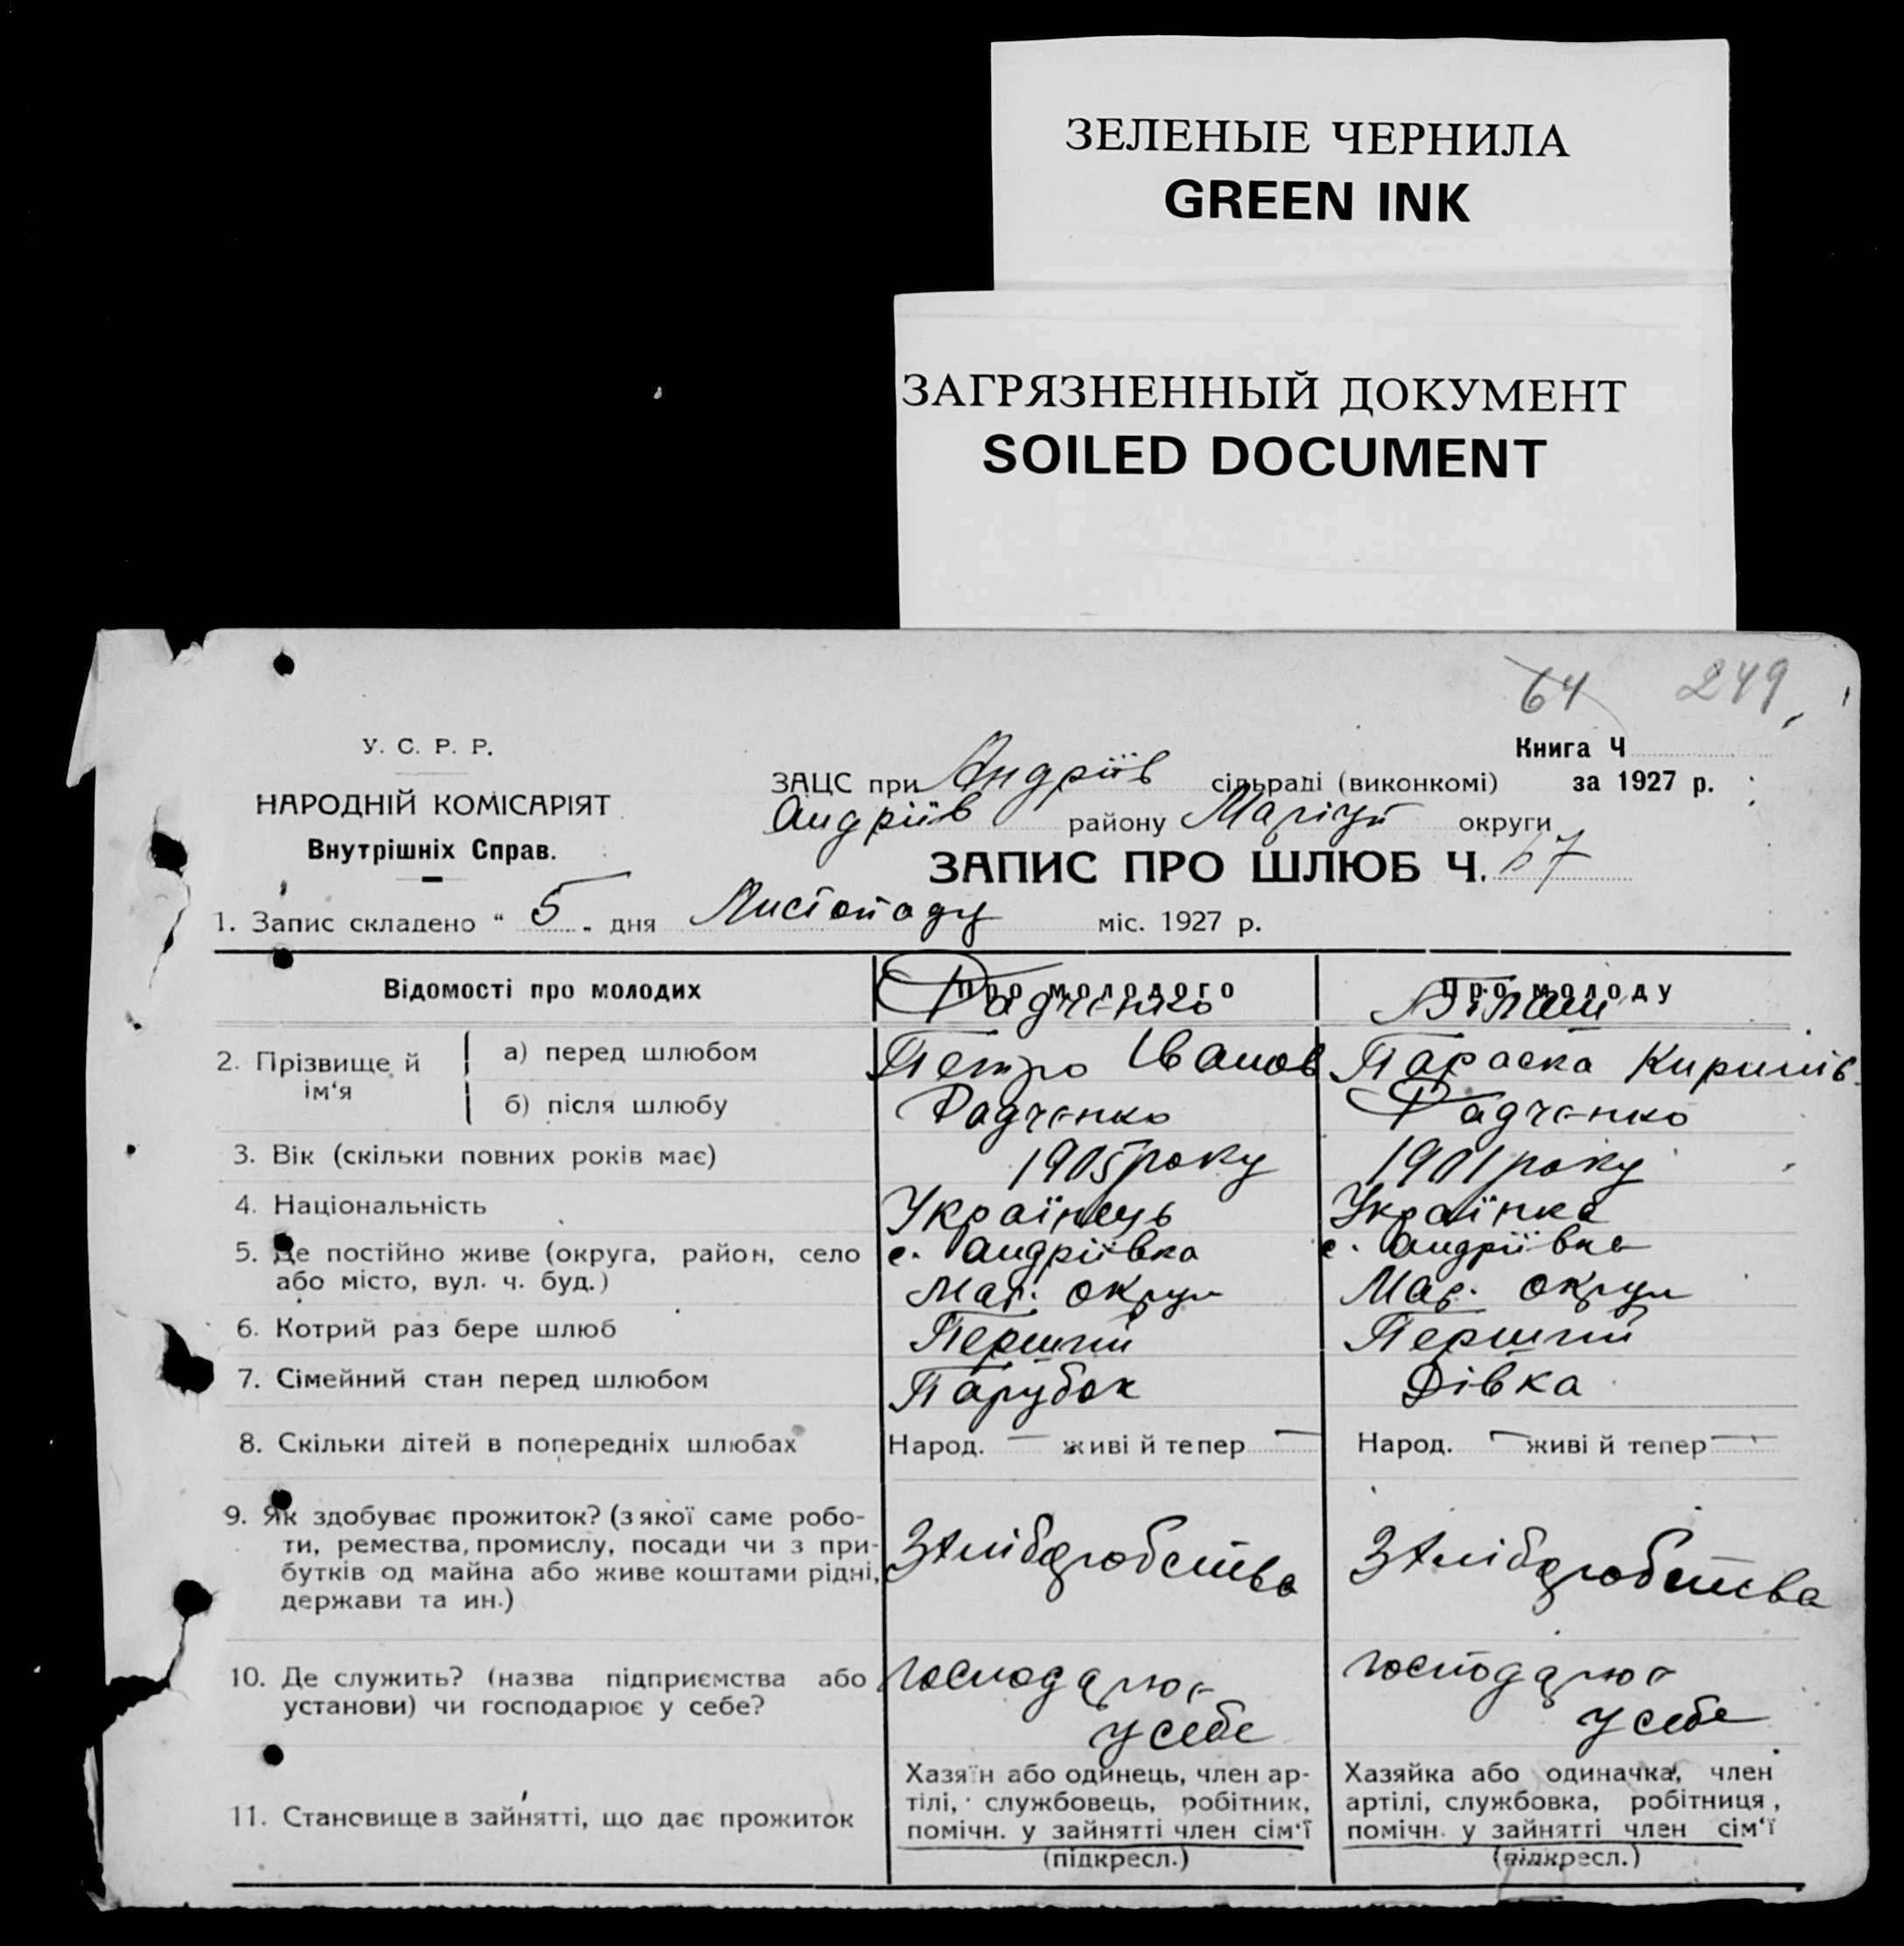 ЗЕЛЕНЫЕ ЧЕРНИЛА
GREEN INK
ЗАГРЯЗНЕННЫЙ ДОКУМЕНТ
SOILED DOCUMENT
64 249
У. С. Р. Р.
НАРОДНІЙ КОМІСАРІЯТ
Внутрішніх Справ.
Книга Ч
ЗАЦС при Андріїв сільраді (виконкомі) за 1927 р.
Андріїв району Маріуп округи
ЗАПИС ПРО ШЛЮБ Ч. 67
1. Запис складено " 5 " дня Листопаду міс. 1927 р.
Відомості про молодих Про молодого Про молоду
Радченко Білаш
2. Прізвище й ім'я а) перед шлюбом Петро Іванов Параска Кирилів
б) після шлюбу Радченко Радченко
3. Вік (скільки повних років має) 1905 року 1901 року
4. Національність Українець Українка
5. Де постійно живе (округа, район, село с. Андріївка с. Андріївка
або місто, вул. ч. буд.) Мар. округи Мар. округи
6. Котрий раз бере шлюб Перший Перший
7. Сімейний стан перед шлюбом Парубок Дівка
8. Скільки дітей в попередніх шлюбах Народ. — живі й тепер — Народ. — живі й тепер —
9. Як здобуває прожиток? (з якої саме робо-
ти, ремества, промислу, посади чи з при- Зхлібдробства Зхлібдробства
бутків од майна або живе коштами рідні,
держави та ин.)
10. Де служить? (назва підприємства або господарює господарює
установи) чи господарює у себе? у себе у себе
11. Становище в зайнятті, що дає прожиток
Хазяїн або одинець, член ар-
тілі, службовець, робітник,
помічн. у зайнятті член сім'ї
(підкресл.)
Хазяйка або одиначка, член
артілі, службовка, робітниця,
помічн. у зайнятті член сім'ї
(підкресл.)